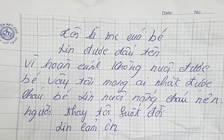 Date: No:
Tôi là mẹ của bé
Xin được dấu tên
vì hoàn cảnh không nuôi được
bé vậy tôi mong ai nhặt được
cháu bé xin nuôi nấng cháu nên
người thay tôi suốt đời
Xin cảm ơn